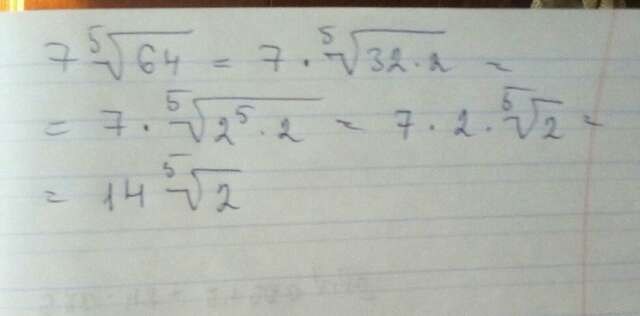 7 ⁵√64 = 7 · ⁵√32 · 2 =
= 7 · ⁵√2⁵ · 2 = 7 · 2 · ⁵√2 =
= 14 ⁵√2